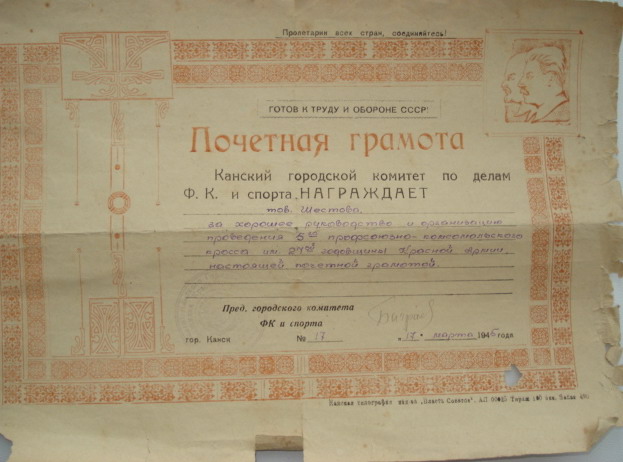 Пролетарии всех стран, соединяйтесь!
ГОТОВ К ТРУДУ И ОБОРОНЕ СССР!
Почетная грамота
Канский городской комитет по делам
Ф. К. и спорта НАГРАЖДАЕТ
тов. Шестова
за хорошее руководство и организацию
проведения 5го профсоюзно-комсомольского
кросса им. годовщины Красной Армии,
настоящей почетной грамотой.
Пред. городского комитета
ФК и спорта
гор. Канск № 17 „17“ марта 1946 года
Канская типография АП Тираж 100 экз. Заказ